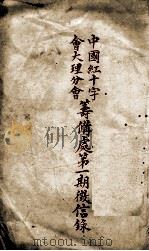 中國紅十字
會大理分會
籌備處第一期徵信錄